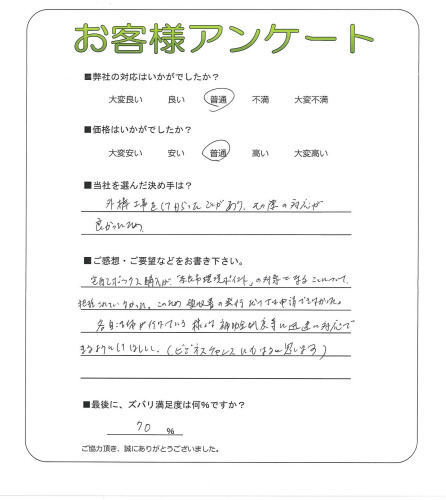 お客様アンケート
■弊社の対応はいかがでしたか？
大変良い 良い 普通 不満 大変不満
■価格はいかがでしたか？
大変安い 安い 普通 高い 大変高い
■当社を選んだ決め手は？
外構工事をして頂いたことがあり、その際の対応が
良かったため
■ご感想・ご要望などをお書き下さい。
宅配ボックス購入が、「奈良市環境ポイント」の対象となることについて、
把握されていなかった。このため領収書の発行だけでは申請できなかった。
各自治体が行っている様々な補助金制度等に迅速に対応で
きるようにしてほしい。(ビジネスチャンスにもなると思います)
■最後に、ズバリ満足度は何%ですか？
70 %
ご協力頂き、誠にありがとうございました。